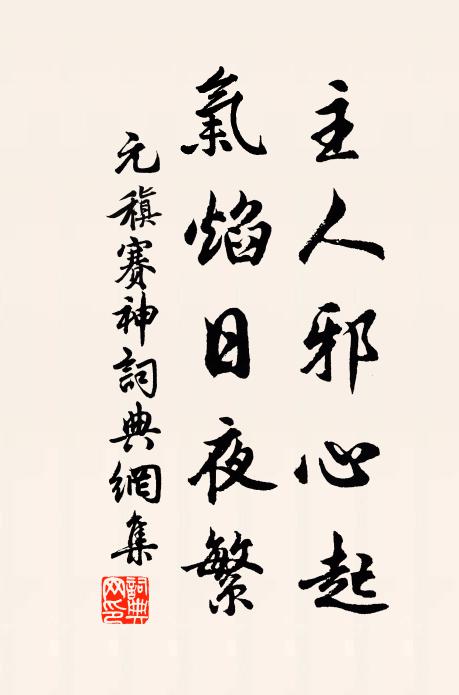 主人邪心起
氣焰日夜繁
元稹賽神詞典網集
詞典網印